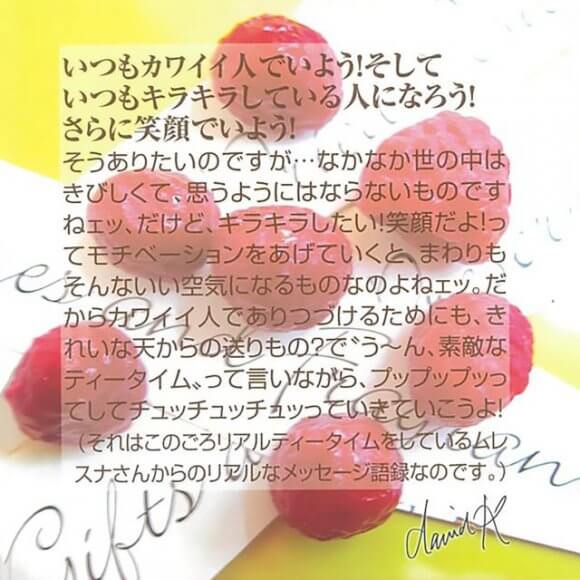 いつもカワイイ人でいよう!そして
いつもキラキラしている人になろう!
さらに笑顔でいよう!
そうありたいのですが…なかなか世の中は
きびしくて、思うようにはならないものです
ねェッ、だけど、キラキラしたい!笑顔だよ!っ
てモチベーションをあげていくと、まわりも
そんないい空気になるものなのよねェッ。だ
からカワイイ人でありつづけるためにも、き
れいな天からの送りもの?で〝う〜ん、素敵な
ティータイム〟って言いながら、プップップッっ
てしてチュッチュッチュッっていきていこうよ!
(それはこのごろリアルティータイムをしているムレ
スナさんからのリアルなメッセージ語録なのです。)
david K
Gifts